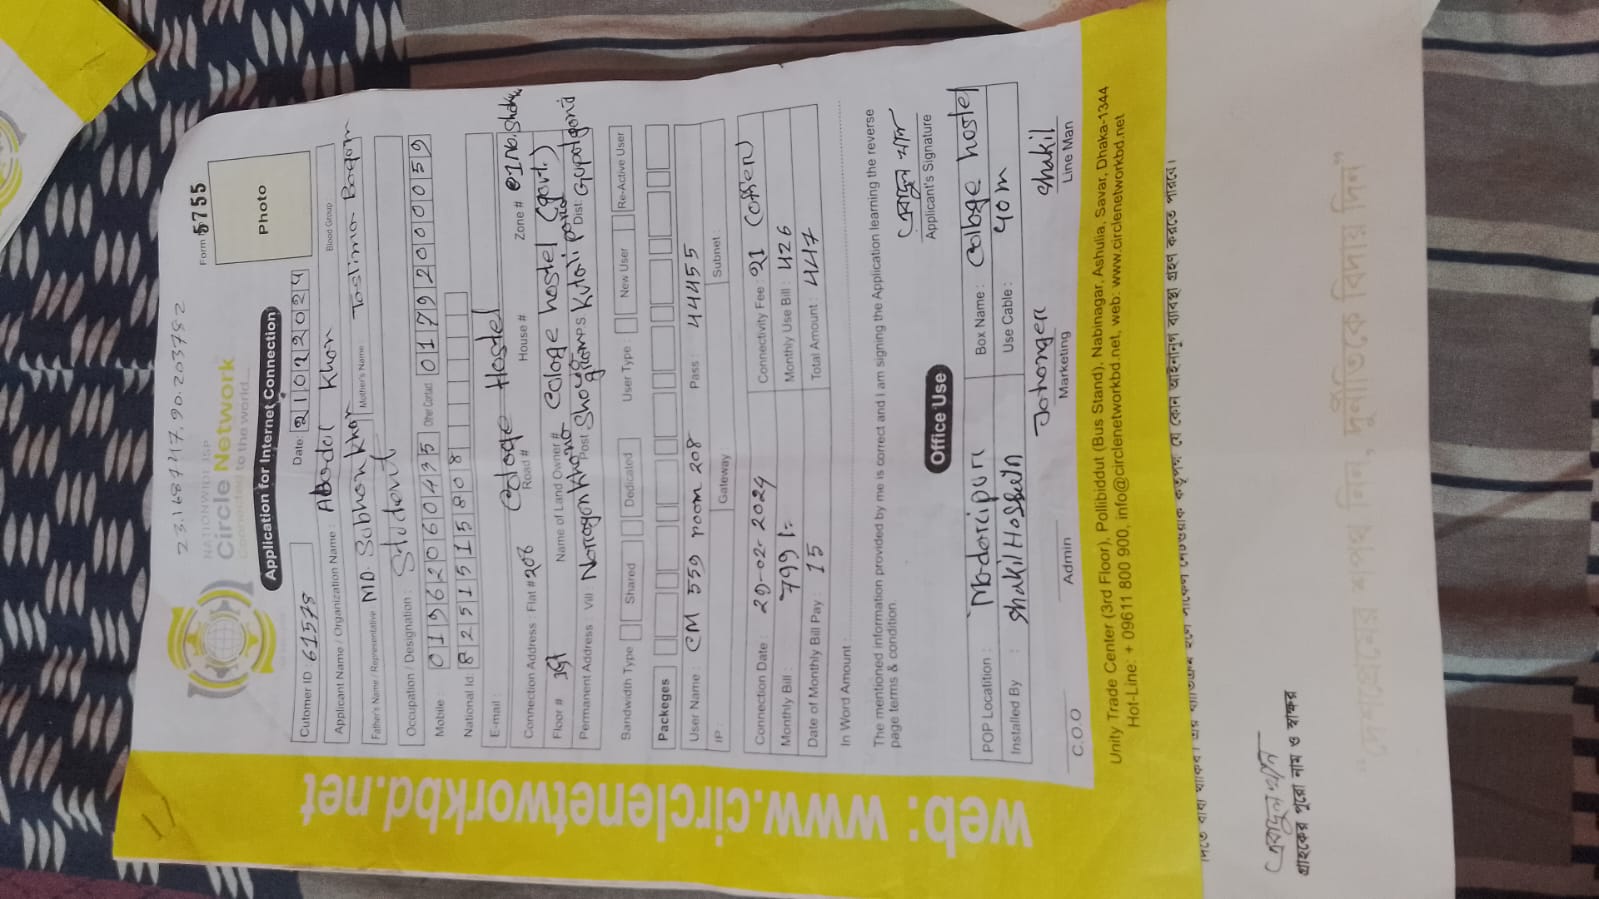 23.1687417,90.203752
NATIONWIDE ISP
Circle Network
Connected to the world
Application for Internet Connection
Form 5755
Photo
Cutomer ID: 61578 Date: 21022024
Applicant Name / Organization Name: Abadol Khan Blood Group
Father's Name / Representative MD. Subhan Khan Mother's Name Taslima Begom
Occupation / Designation: Student
Mobile: 01962060435 Other Contact 01792000059
National Id: 8251515808
E-mail:
Connection Address: Flat # 208 Road # Cologe Hostel House # Zone #
Floor # 1st Name of Land Owner # Cologe hostel (Govt.)
Permanent Address Vill Post Dist:
Bandwidth Type Shared Dedicated User Type: New User Re-Active User
Packeges
User Name: CM 559 room 208 Pass: 44455
IP: Gateway Subnet:
Connection Date: 29-02-2024 Connectivity Fee: 21
Monthly Bill: 799/- Monthly Use Bill: 426
Date of Monthly Bill Pay: 15 Total Amount: 447
In Word Amount:
The mentioned information provided by me is correct and I am signing the Application learning the reverse
page terms & condition.
Applicant's Signature
Office Use
POP Locatition: Madaripur Box Name: Cologe hostel
Installed By: Shakil Hossain Use Cable: 40m
Jahangir Shakil
C.O.O Admin Marketing Line Man
Unity Trade Center (3rd Floor), Pollibiddut (Bus Stand), Nabinagar, Ashulia, Savar, Dhaka-1344
Hot-Line: + 09611 800 900, info@circlenetworkbd.net, web: www.circlenetworkbd.net
web: www.circlenetworkbd.net
গ্রাহকের পুরো নাম ও স্বাক্ষর
"দেশপ্রেমের শপথ নিন, দুর্নীতিকে বিদায় দিন"